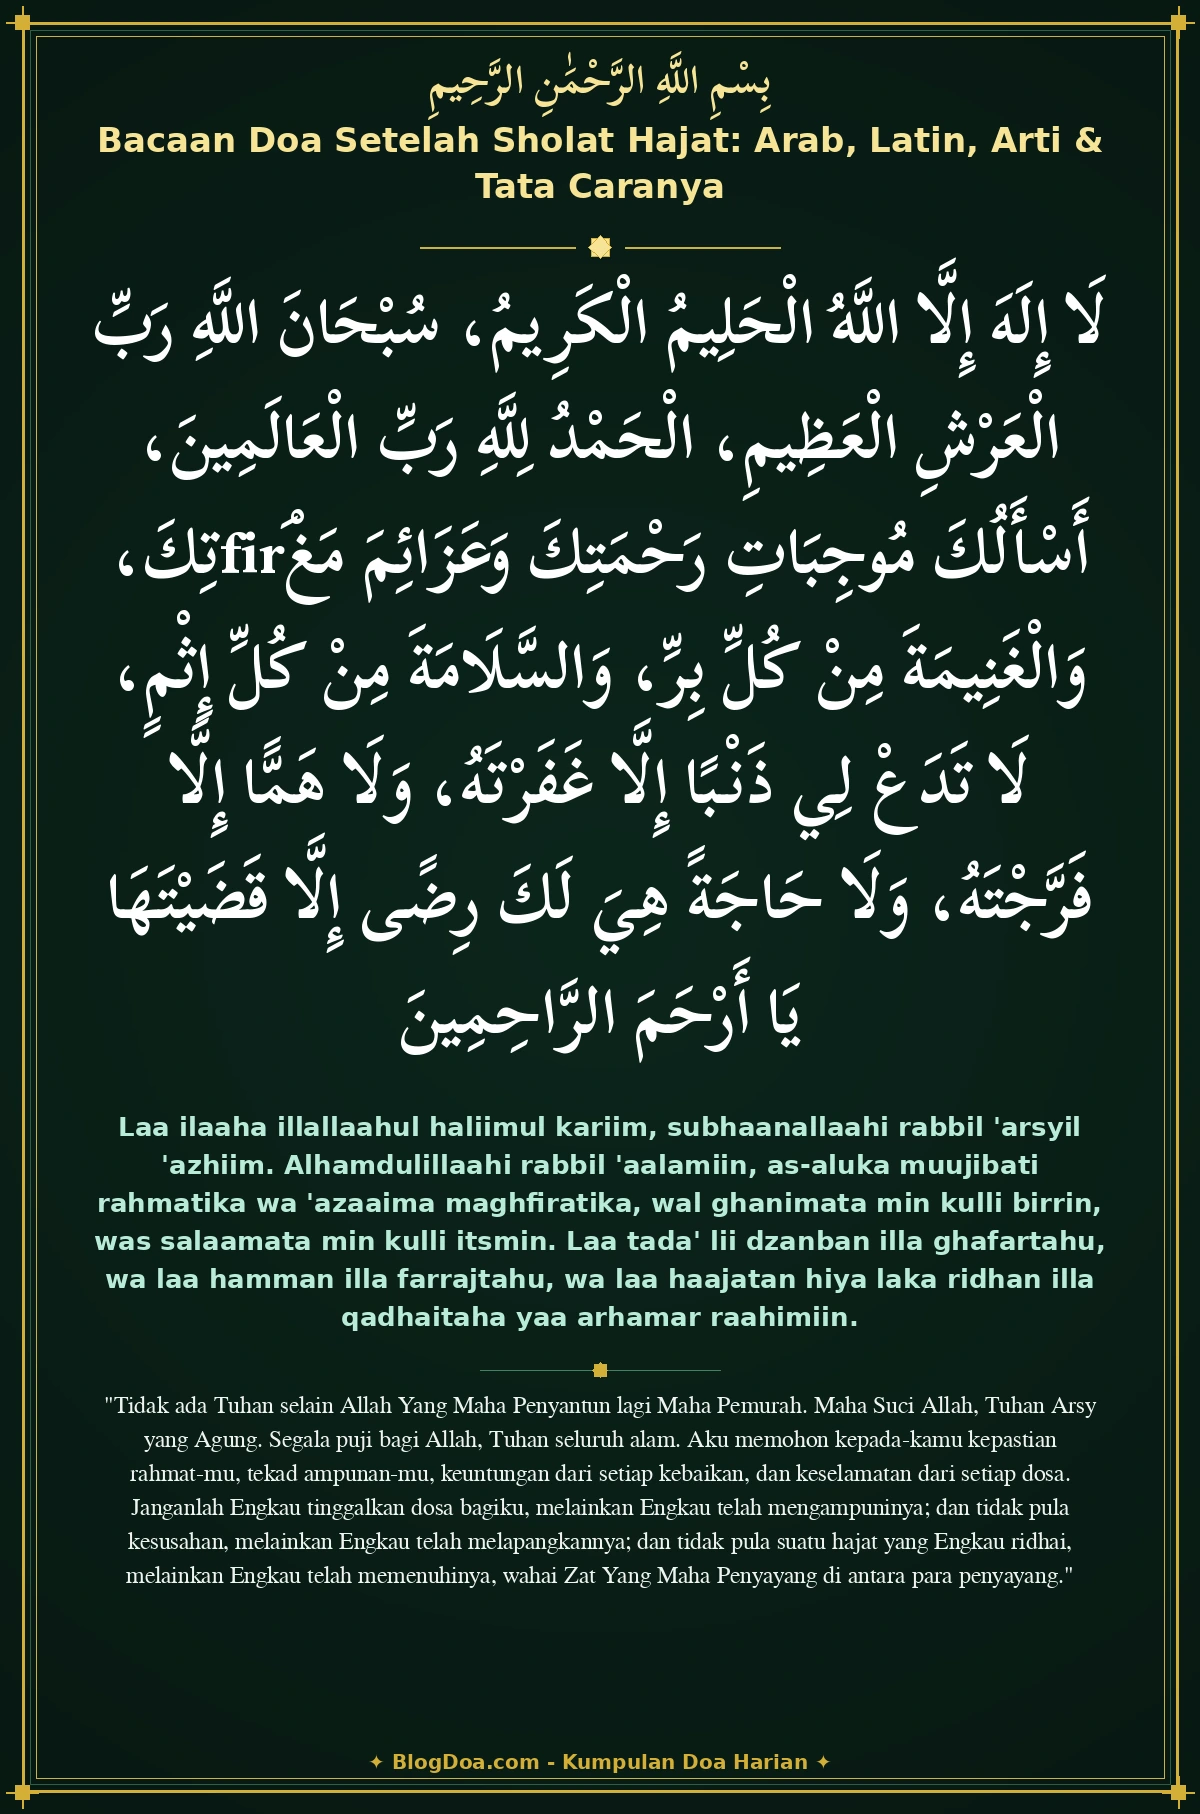 بِسْمِ اللَّهِ الرَّحْمَٰنِ الرَّحِيمِ
Bacaan Doa Setelah Sholat Hajat: Arab, Latin, Arti &
Tata Caranya
لَا إِلَهَ إِلَّا اللَّهُ الْحَلِيمُ الْكَرِيمُ، سُبْحَانَ اللَّهِ رَبِّ
الْعَرْشِ الْعَظِيمِ، الْحَمْدُ لِلَّهِ رَبِّ الْعَالَمِينَ،
أَسْأَلُكَ مُوجِبَاتِ رَحْمَتِكَ وَعَزَائِمَ مَغْفِirَتِكَ،
وَالْغَنِيمَةَ مِنْ كُلِّ بِرٍّ، وَالسَّلَامَةَ مِنْ كُلِّ إِثْمٍ،
لَا تَدَعْ لِي ذَنْبًا إِلَّا غَفَرْتَهُ، وَلَا هَمًّا إِلَّا
فَرَّجْتَهُ، وَلَا حَاجَةً هِيَ لَكَ رِضًى إِلَّا قَضَيْتَهَا
يَا أَرْحَمَ الرَّاحِمِينَ
Laa ilaaha illallaahul haliimul kariim, subhaanallaahi rabbil 'arsyil
'azhiim. Alhamdulillaahi rabbil 'aalamiin, as-aluka muujibati
rahmatika wa 'azaaima maghfiratika, wal ghanimata min kulli birrin,
was salaamata min kulli itsmin. Laa tada' lii dzanban illa ghafartahu,
wa laa hamman illa farrajtahu, wa laa haajatan hiya laka ridhan illa
qadhaitaha yaa arhamar raahimiin.
"Tidak ada Tuhan selain Allah Yang Maha Penyantun lagi Maha Pemurah. Maha Suci Allah, Tuhan Arsy
yang Agung. Segala puji bagi Allah, Tuhan seluruh alam. Aku memohon kepada-kamu kepastian
rahmat-mu, tekad ampunan-mu, keuntungan dari setiap kebaikan, dan keselamatan dari setiap dosa.
Janganlah Engkau tinggalkan dosa bagiku, melainkan Engkau telah mengampuninya; dan tidak pula
kesusahan, melainkan Engkau telah melapangkannya; dan tidak pula suatu hajat yang Engkau ridhai,
melainkan Engkau telah memenuhinya, wahai Zat Yang Maha Penyayang di antara para penyayang."
✦ BlogDoa.com - Kumpulan Doa Harian ✦